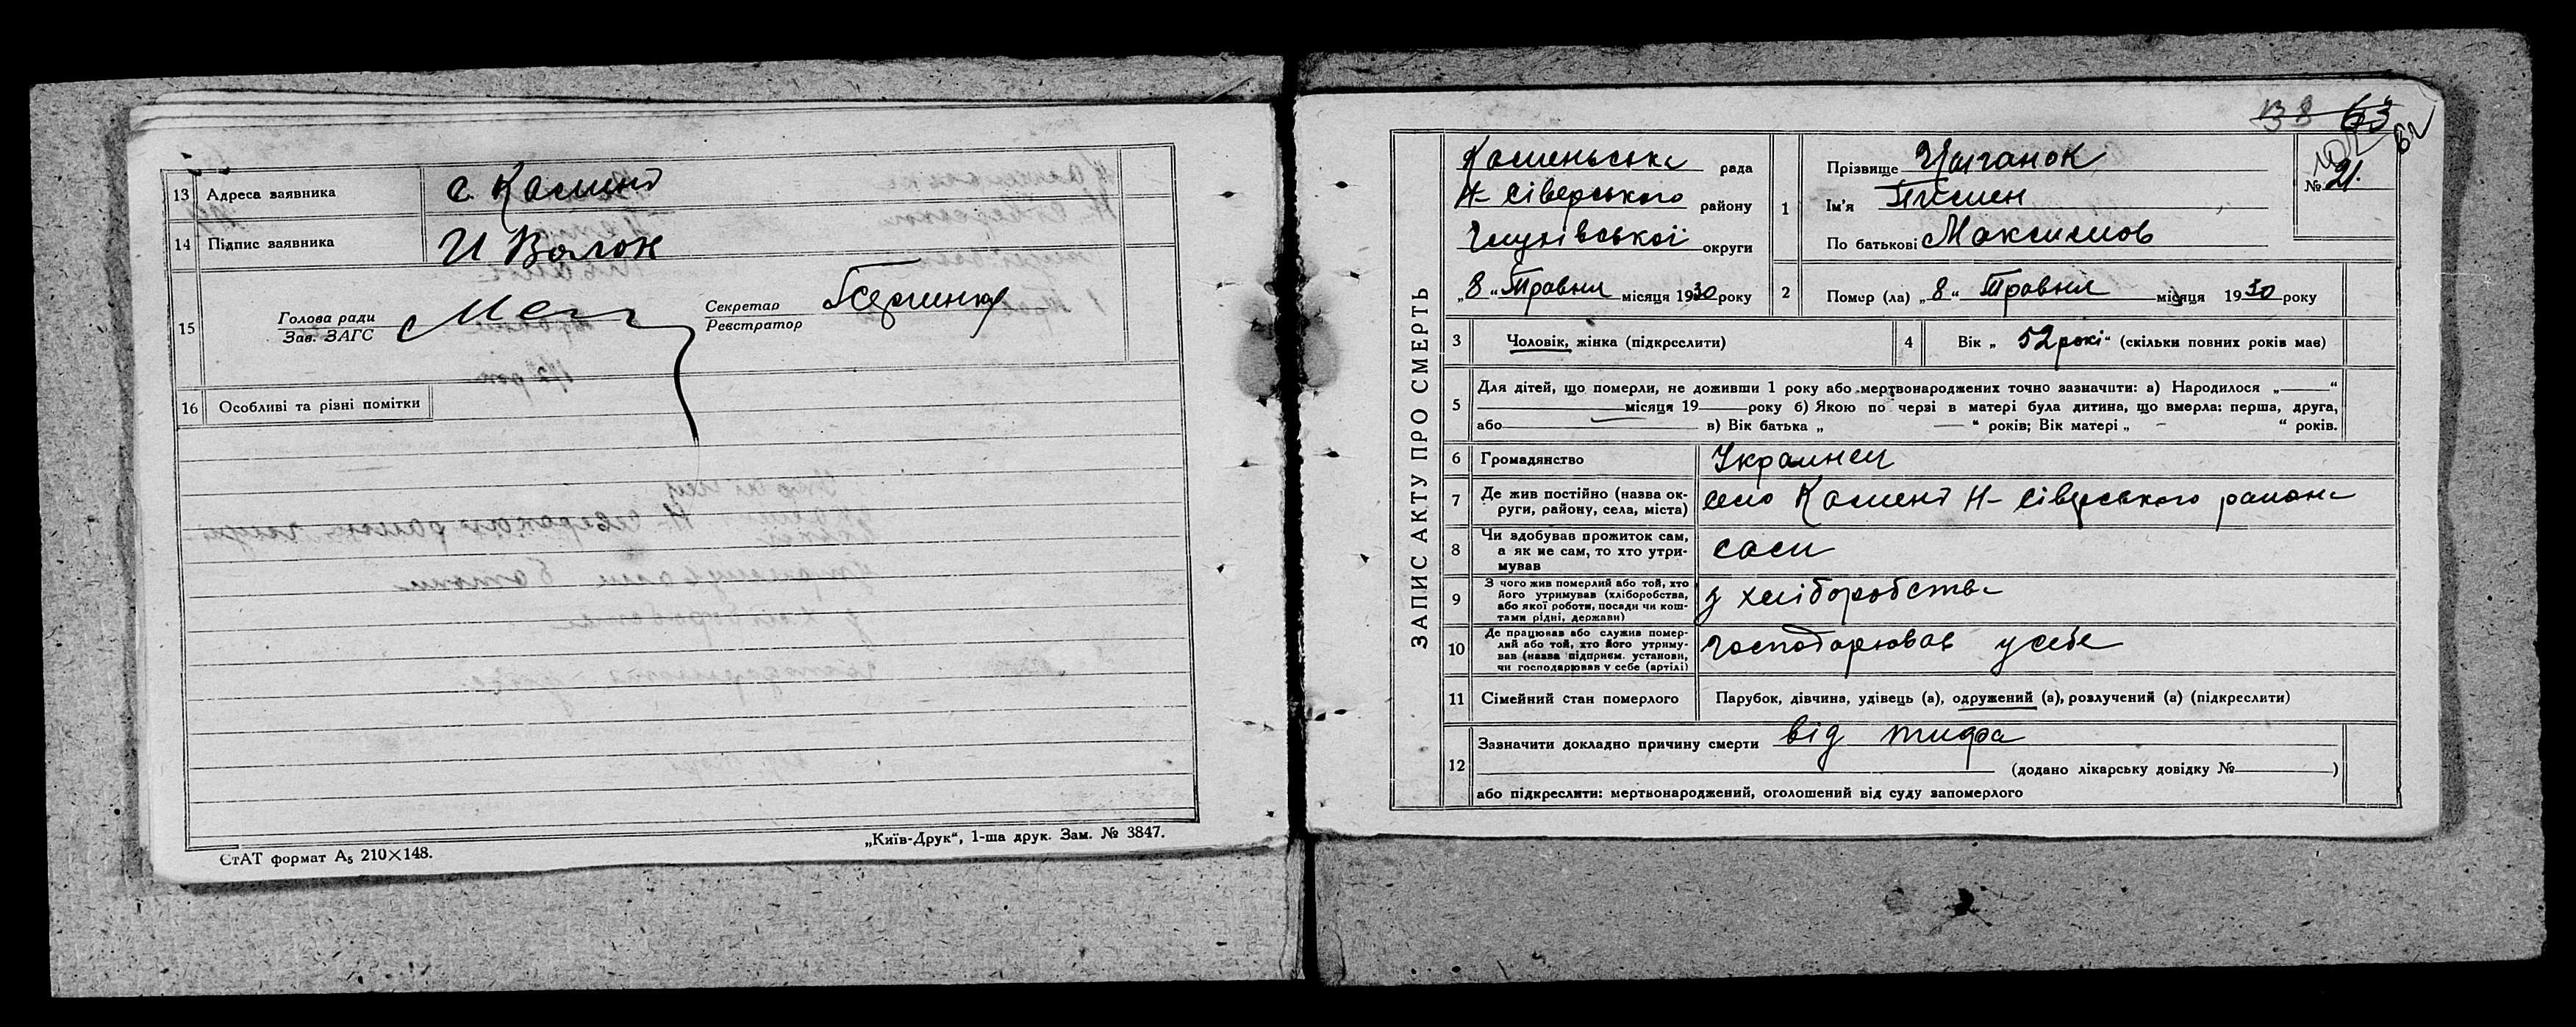 13 Адреса заявника с. Камень
14 Підпис заявника И Волок
15 Голова ради
Зав. ЗАГС
Секретар
Реєстратор
16 Особливі та різні помітки
СтАТ формат А₅ 210×148.
„Київ-Друк“, 1-ша друк. Зам. № 3847.
138 63
62
ЗАПИС АКТУ ПРО СМЕРТЬ
Каменьська рада
Н-Сіверського району
округи
„8“ Травня місяця 1930 року
1 Прізвище Цыганок
Ім'я Пімен
По батькові Максимов
№ 21.
2 Помер (ла) „8“ Травня місяця 1930 року
3 Чоловік, жінка (підкреслити)
4 Вік „52 рокі“ (скільки повних років мав)
5 Для дітей, що померли, не доживши 1 року або мертвонароджених точно зазначити: а) Народилося „ — “
місяця 19 року б) Якою по черзі в матері була дитина, що вмерла: перша, друга,
або — в) Вік батька „ — “ років; Вік матері „ - “ років.
6 Громадянство Украинец
7 Де жив постійно (назва ок-
руги, району, села, міста) село Камень Н-Сіверського района
8 Чи здобував прожиток сам,
а як не сам, то хто утри-
мував
сам
9 З чого жив померлий або той, хто
його утримував (хліборобства,
або якої роботи, посади чи кош-
тами рідні, держави)
з хліборобства
10 Де працював або служив помер-
лий або той, хто його утриму-
вав (назва підприєм. установи,
чи господарював у себе (артілі)
господарював у себе
11 Сімейний стан померлого Парубок, дівчина, удівець (а), одружений (а), розлучений (а) (підкреслити)
12 Зазначити докладно причину смерти від тифа
(додано лікарську довідку № )
або підкреслити: мертвонароджений, оголошений від суду запомерлого